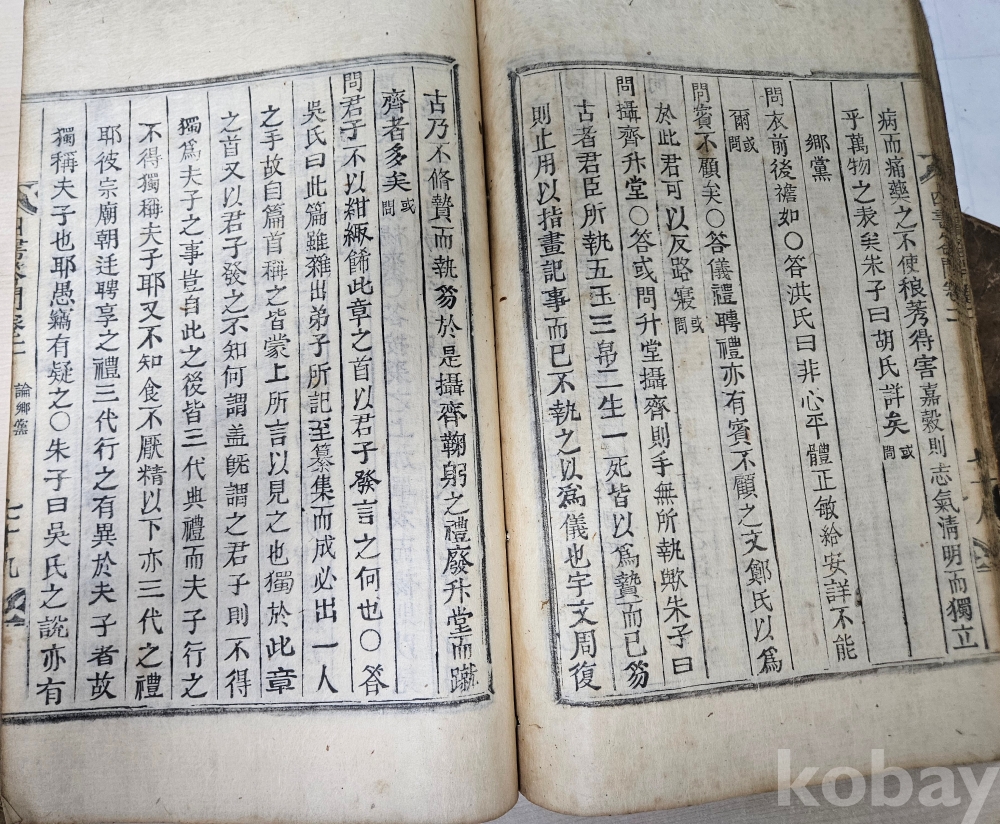 病而痛藥之不使稂莠得害嘉穀則志氣淸明而獨立
乎萬物之表矣朱子曰胡氏詳矣或問
鄉黨
問衣前後襜如〇答洪氏曰非心平體正敏給安詳不能
爾或問
問賓不顧矣〇答儀禮聘禮亦有賓不顧之文鄭氏以爲
於此君可以反路寢或問
問攝齊升堂〇答或問升堂攝齊則手無所執歟朱子曰
古者君臣所執五玉三帛二生一死皆以爲贄而已笏
則止用以指畫記事而已不執之以爲儀也宇文周復
古乃不脩贄而執笏於是攝齊鞠躬之禮廢升堂而蹴
齊者多矣或問
問君子不以紺緅飾此章之首以君子發言之何也〇答
吳氏曰此篇雖雜出弟子所記至纂集而成必出一人
之手故自篇首稱之皆蒙上所言以見之也獨於此章
之首又以君子發之不知何謂盖旣謂之君子則不得
獨爲夫子之事豈自此之後皆三代典禮而夫子行之
不得獨稱夫子耶又不知食不厭精以下亦三代之禮
耶彼宗廟朝廷聘享之禮三代行之有異於夫子者故
獨稱夫子也耶愚竊有疑之〇朱子曰吳氏之說亦有
論鄕黨
kobay